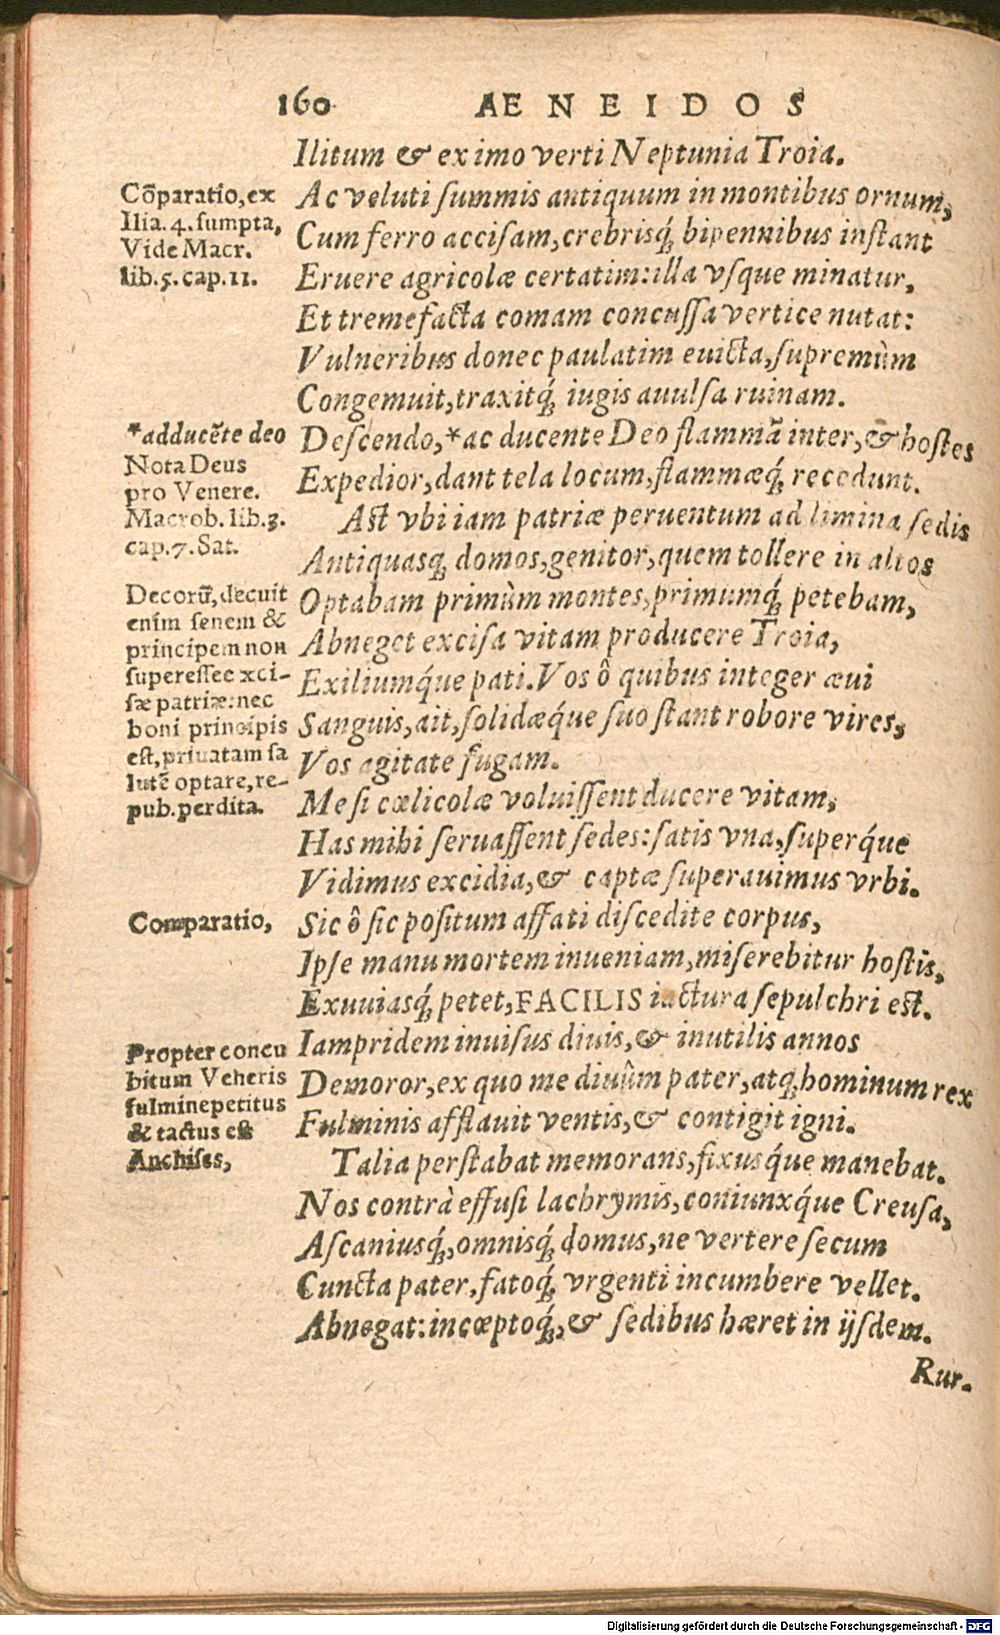 160 AENEIDOS
Ilitum & ex imo verti Neptunia Troia.
Cõparatio, ex
Ilia. 4. sumpta,
Vide Macr.
lib. 5. cap. 11.
Ac veluti summis antiquum in montibus ornum,
Cum ferro accisam, crebrisq́; bipennibus instant
Eruere agricolæ certatim: illa vsque minatur,
Et tremefacta comam concussa vertice nutat:
Vulneribus donec paulatim euicta, supremùm
Congemuit, traxitq́; iugis auulsa ruinam.
*aducẽte deo
Nota Deus
pro Venere.
Macrob. lib. 3.
cap. 7. Sat.
Descendo, *ac ducente Deo flammã inter, & hostes
Expedior, dant tela locum, flammæq́; recedunt.
Ast vbi iam patriæ peruentum ad limina sedis
Antiquasq; domos, genitor, quem tollere in altos
Decorũ, decuit
enim senem &
principem non
superesse exci-
sæ patriæ: nec
boni principis
est, priuatam sa
lutẽ optare, re-
pub. perdita.
Optabam primùm montes, primumq́; petebam,
Abneget excisa vitam producere Troia,
Exiliumq́ue pati. Vos ô quibus integer æui
Sanguis, ait, solidæq́ue suo stant robore vires,
Vos agitate fugam.
Me si cœlicolæ voluissent ducere vitam,
Has mihi seruassent sedes: satis vna, superq́ue
Vidimus excidia, & captæ superauimus vrbi.
Comparatio,
Sic ô sic positum affati discedite corpus,
Ipse manu mortem inueniam, miserebitur hostis,
Exuuiasq́; petet, FACILIS iactura sepulchri est.
Propter concu
bitum Veneris
fulmine petitus
& tactus est
Anchises,
Iampridem inuisus diuis, & inutilis annos
Demoror, ex quo me diuûm pater, atq; hominum rex
Fulminis afflauit ventis, & contigit igni.
Talia perstabat memorans, fixusq́ue manebat.
Nos contrà effusi lachrymis, coniunxq́ue Creusa,
Ascaniusq́;, omnisq́; domus, ne vertere secum
Cuncta pater, fatoq́; vrgenti incumbere vellet.
Abnegat: incœptoq́;, & sedibus hæret in ijsdem.
Rur.
Digitalisierung gefördert durch die Deutsche Forschungsgemeinschaft - DFG